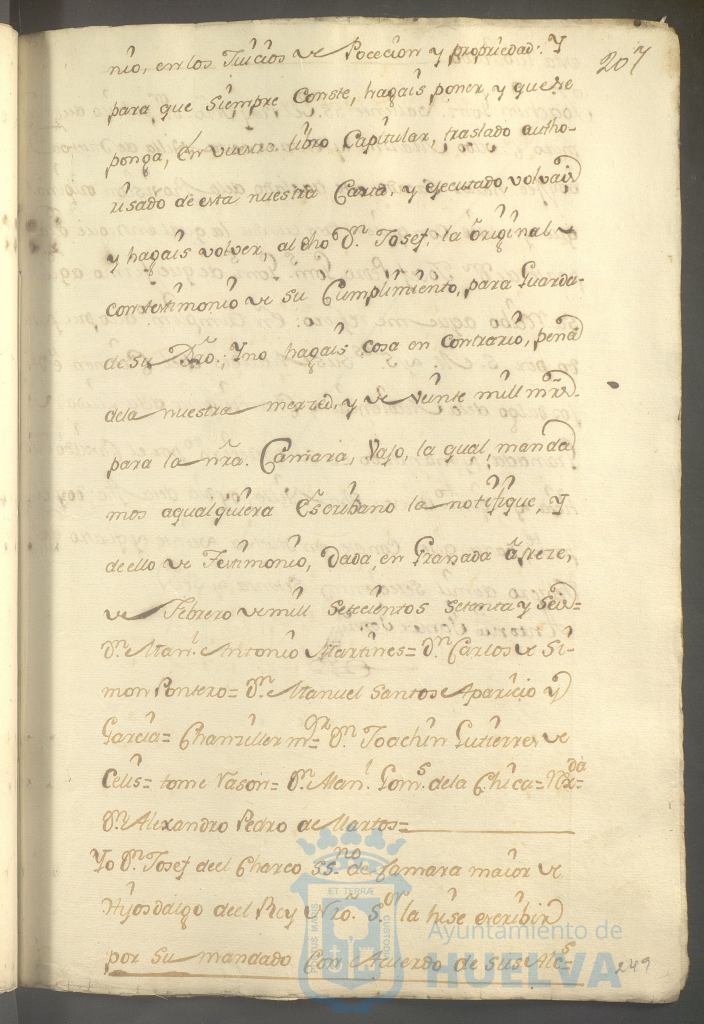 207
nio, en los Juicios de Pocecion y propriedad: Y
para que siempre conste, hagais poner, y que se
ponga, en vuestro libro Capitular, traslado autho-
risado de esta nuestra Carta, y ejecutado, volvais
y hagais volver, al dho Dn. Josef, la original
con testimonio de su Cumplimiento, para Guarda
de su Dro.; Y no hagais cosa en contrario, pena
de la nuestra merzed, y de veinte mill mrs.
para la nra. Camara, Vajo, la qual, manda
mos aqualquiera Escribano la notifique, Y
de ello de Testimonio, Dada, en Granada a treze,
de Febrero de mill setecientos setenta y seis=
Dn. Manl. Antonio Martines= Dn. Carlos de Si-
mon Pontero= Dn. Manuel Santos Aparicio y
Garcia= Chanziller mor= Dn. Joachin Gutierres de
Celis= tome rason= Dn. Manl. Goms. de la Chica= Rxda
Dn. Alexandro Pedro de Martos=
Yo Dn. Josef deel Charco ssno. de Camara maior de
Hijosdalgo deel Rey Nro. Sor. la hise escribir
por su mandado Con Acuerdo de sus Alcs=
249
ET TERRÆ
PORTUS MARIS
CUSTODIA
Ayuntamiento de
HUELVA